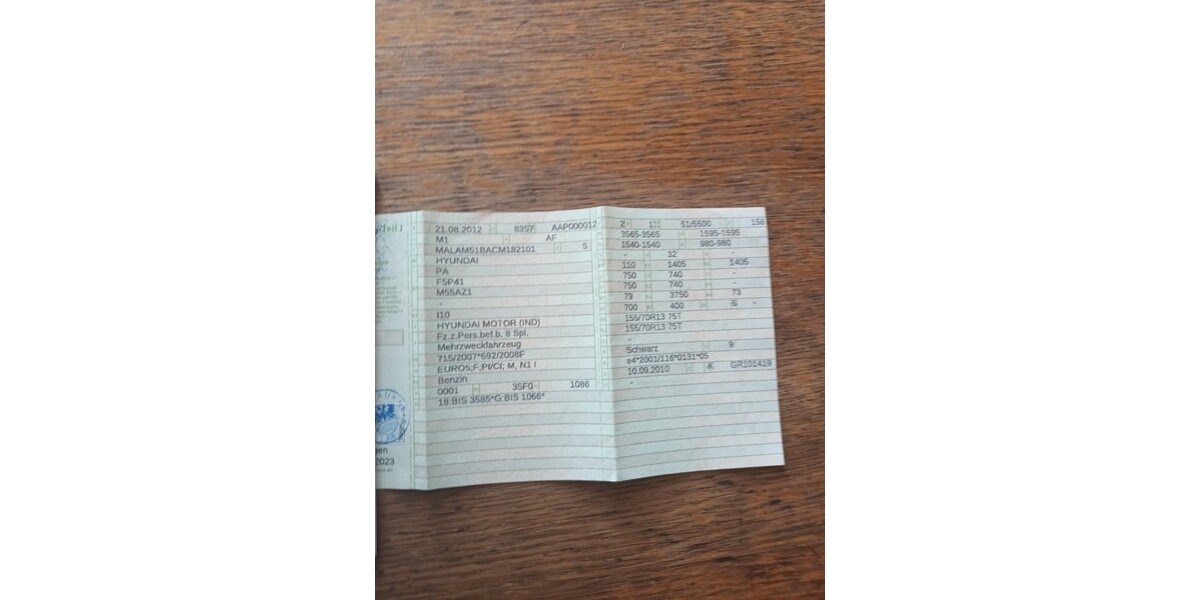 Teil I
gen
2023
21.08.2012 8357 AAP000012
M1 AF
MALAM51BACM182101 5
HYUNDAI
PA
F5P41
M55AZ1
-
I10
HYUNDAI MOTOR (IND)
Fz.z.Pers.bef.b. 8 Spl.
Mehrzweckfahrzeug
715/2007*692/2008F
EURO5;F;PI/CI; M, N1 I
Benzin
0001 35F0 1086
18:BIS 3585*G:BIS 1066*
2 1 51/5500 156
3565-3565 1595-1595
1540-1540 980-980
- 32 - -
110 1405 1405
750 740 -
750 740 -
79 3750 73
700 400 -
155/70R13 75T
155/70R13 75T
-
Schwarz 9
e4*2001/116*0131*05
10.09.2010 K GR101419
-